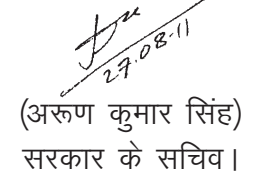 27.08.11
(अरूण कुमार सिंह)
सरकार के सचिव।